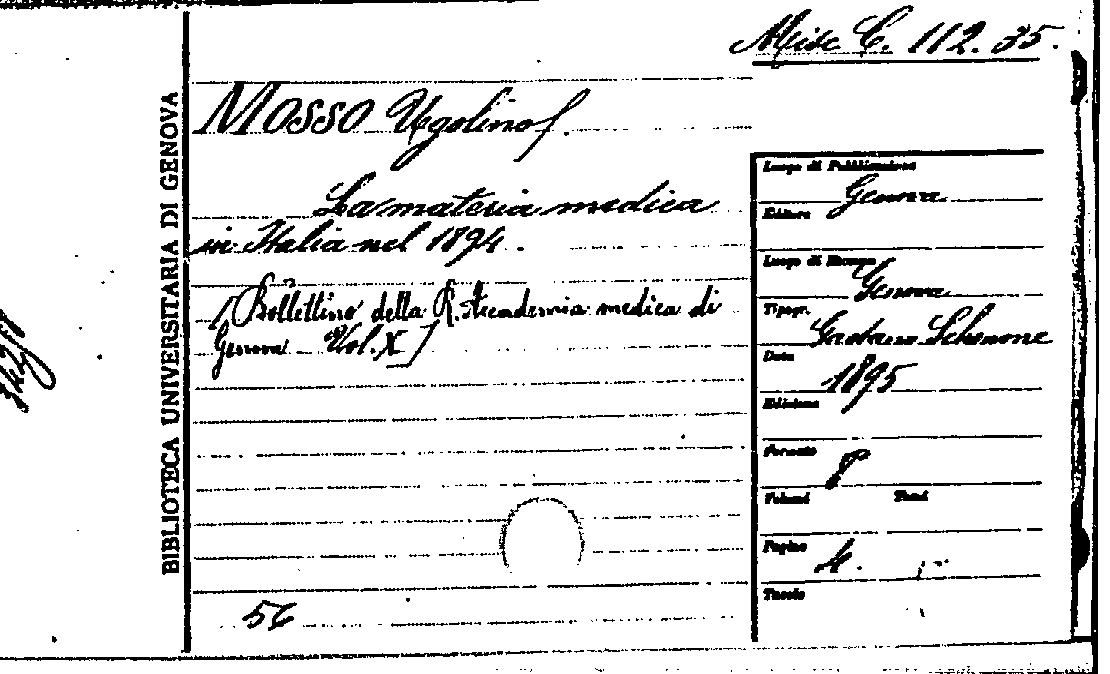 Misc C. 112. 35.
BIBLIOTECA UNIVERSITARIA DI GENOVA
MOSSO Ugolino
La materia medica
in Italia nel 1894.
[Bollettino della R. Accademia medica di
Genova Vol. X]
56
Luogo di Pubblicazione
Genova
Editore
Luogo di Stampa
Genova
Tipogr.
Gaetano Schenone
Data
1895
Edizione
Formato
8°
Volumi Tomi
Pagine
4.
Tavole